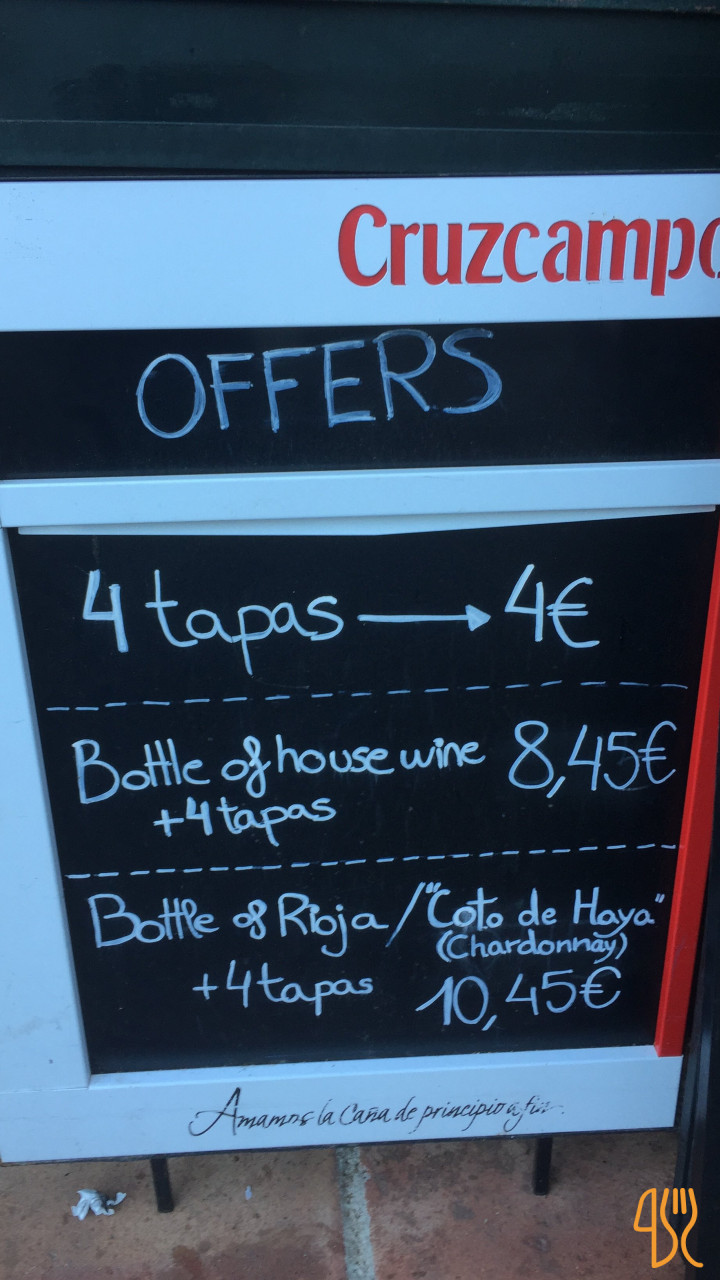 Cruzcampo
OFFERS
4 tapas → 4€
Bottle of house wine 8,45€
+4 tapas
Bottle of Rioja / "Coto de Haya"
(Chardonnay)
+4 tapas 10,45€
Amamos la Caña de principio a fin